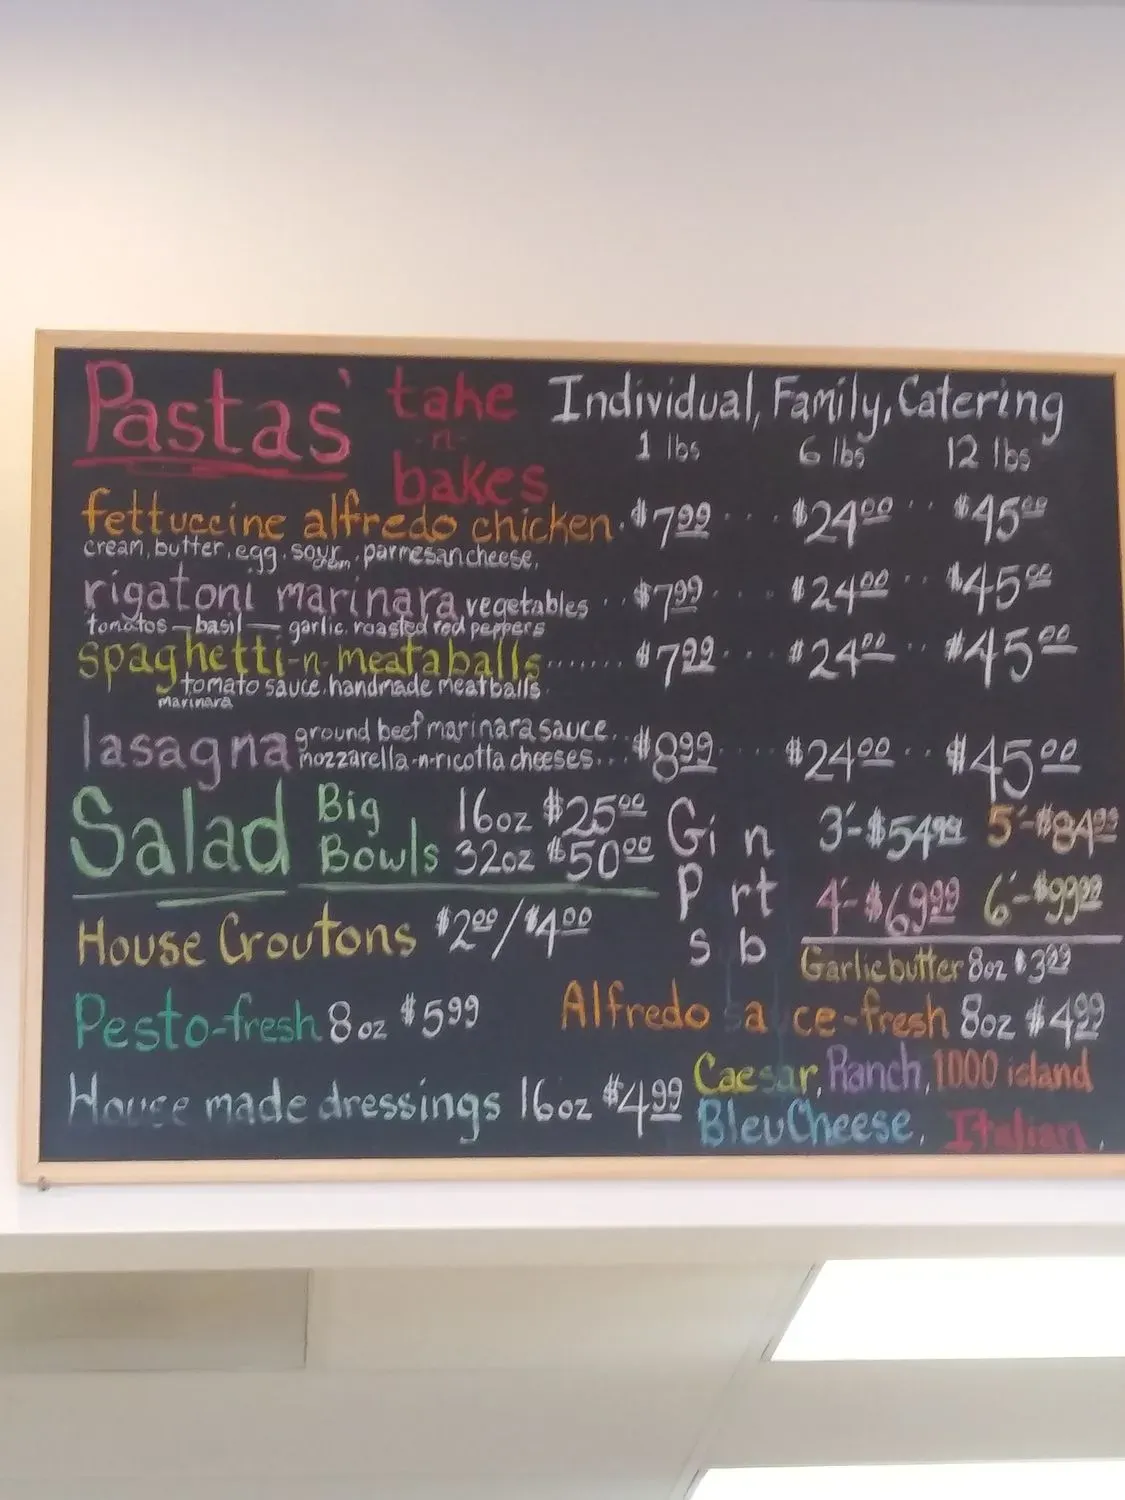 Pastas' take -n- bakes Individual, Family, Catering
1 lbs 6 lbs 12 lbs
fettuccine alfredo chicken. $7.99 ... $24.00 .. $45.00
cream, butter, egg, sour cream, parmesan cheese,
rigatoni marinara vegetables .. $7.99 .... $24.00 .. $45.00
tomatos — basil — garlic, roasted red peppers
spaghetti-n-meataballs....... $7.99 ... $24.00 .. $45.00
tomato sauce, handmade meatballs.
marinara
lasagna ground beef marinara sauce.. $8.99 .... $24.00 .. $45.00
mozzarella-n-ricotta cheeses...
Salad Big Bowls 16oz $25.00
32oz $50.00
Gi n P rt s b
3'-$54.99 5'-$84.99
4'-$69.99 6'-$99.99
House Croutons $2.00/$4.00
Garlic butter 8oz $3.99
Pesto-fresh 8oz $5.99
Alfredo sauce-fresh 8oz $4.99
House made dressings 16oz $4.99
Caesar, Ranch, 1000 island
Bleu Cheese, Italian,